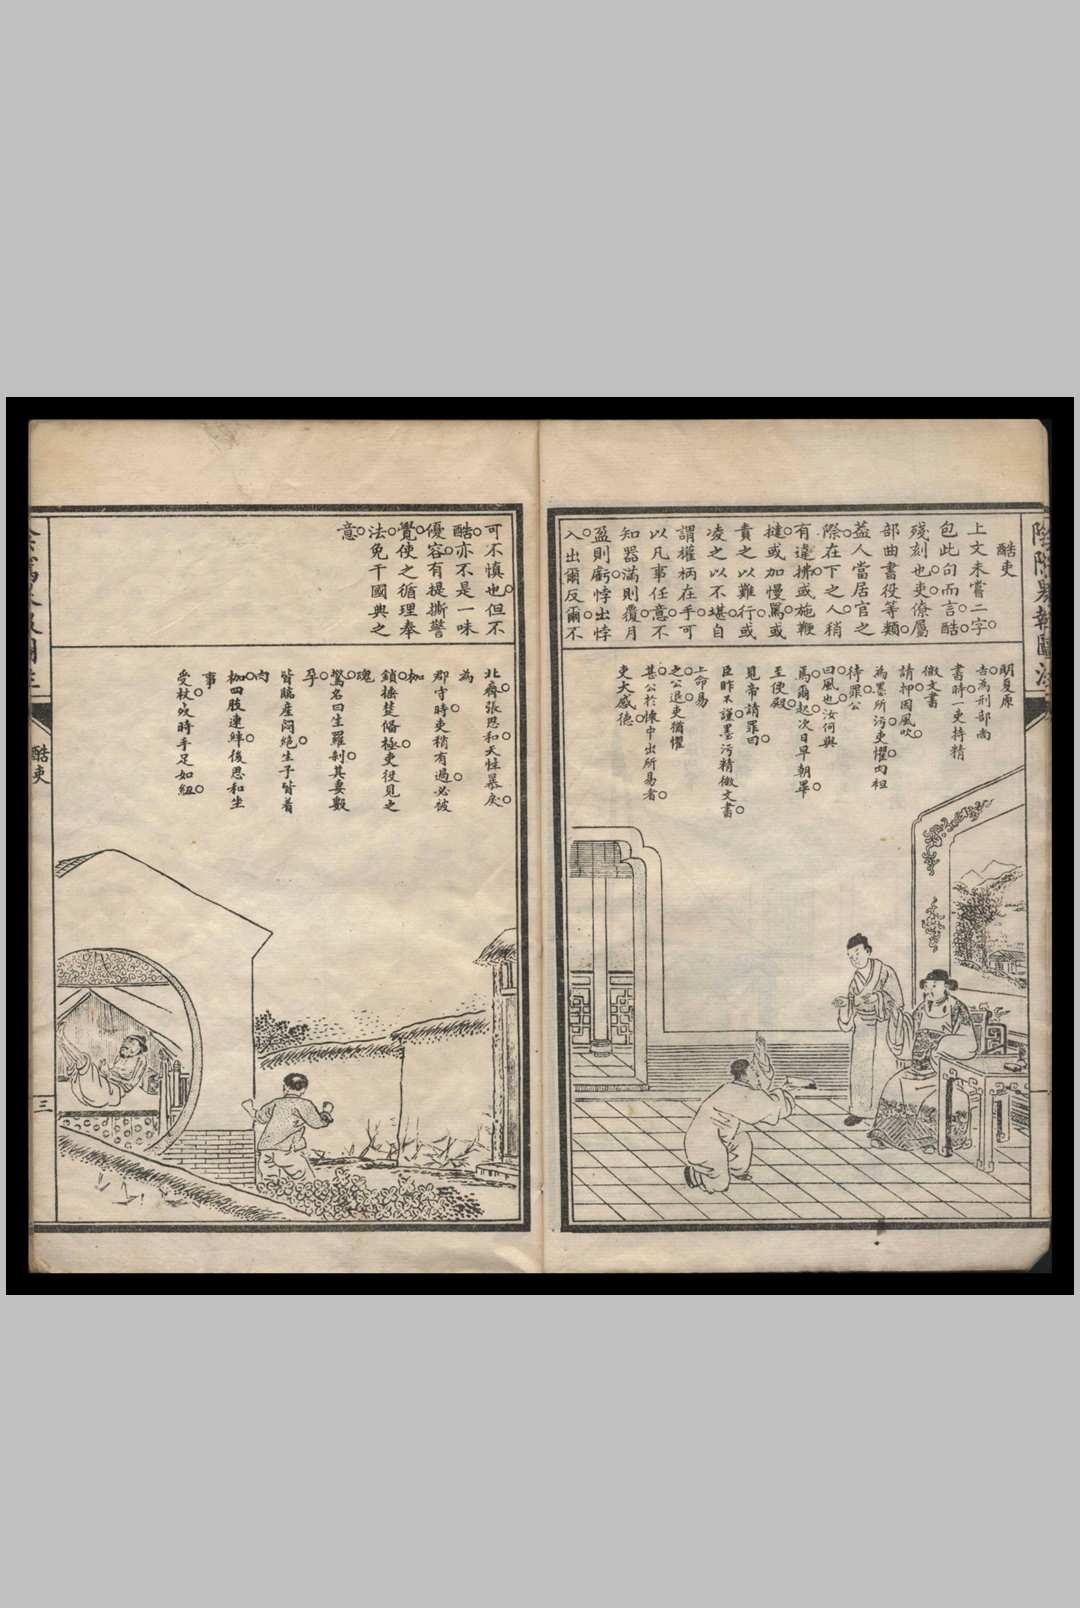 酷吏
上文未嘗二字。
包此句而言。酷
殘刻也。吏。僚屬
部曲書役等類。
葢人當居官之
際。在下之人。稍
有違拂。或施鞭
撻。或加慢罵。或
責之以難行。或
凌之以不堪。自
謂權柄在手。可
以凡事任意。不
知器滿則覆。月
盈則虧。悖出悖
入。出爾反爾。不
明夏原
吉。為刑部尚
書時。一吏持精
微文書
請押。因風吹。
為墨所污。吏懼。肉袒
待罪。公
曰。風也。汝何與
焉。爾起。次日早朝畢。
至便殿。
見帝請罪曰。
臣昨不謹。墨污精微文書。
上命易
之。公退。吏猶懼
甚。公於懷中出所易者。
吏大感德。
酷吏
三
可不慎也。但不
酷。亦不是一味
優容。有提撕警
覺。使之循理奉
法。免干國典之
意。
北齊。張思和。天性暴戾。
為
郡守時。吏稍有過。必被
枷
鎖捶楚。備極。吏役見之
魂
驚。名曰生羅剎。其妻數
孕。
皆臨產悶絕。生子皆着
肉
枷。四肢連絆。後思和坐
事
受杖。歿時手足如紐。